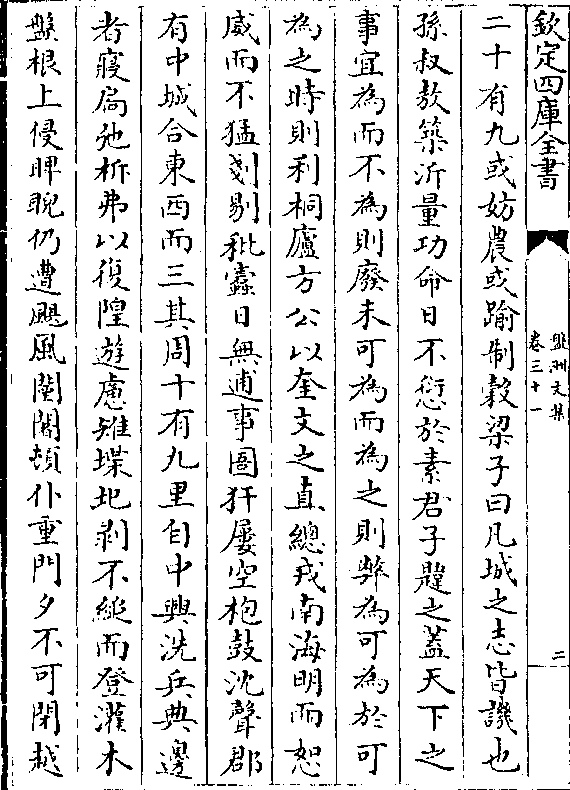 欽定四庫全書
盤洲文集
卷三十一
二
二十有九或妨農或踰制穀梁子曰凡城之志皆譏也
孫叔敖築沂量功命日不愆於素君子韙之蓋天下之
事宜為而不為則廢未可為而為之則弊為可為於可
為之時則利桐廬方公以奎文之直總戎南海明而恕
威而不猛剗剔秕蠹日無逋事圄犴屢空枹鼓沈聲郡
有中城合東西而三其周十有九里自中興洗兵典邊
者寢扃弛柝弗以復隍遊慮雉堞圮剥不縋而登灌木
盤根上侵睥睨仍遭颶風闉闍頓仆重門夕不可閉越